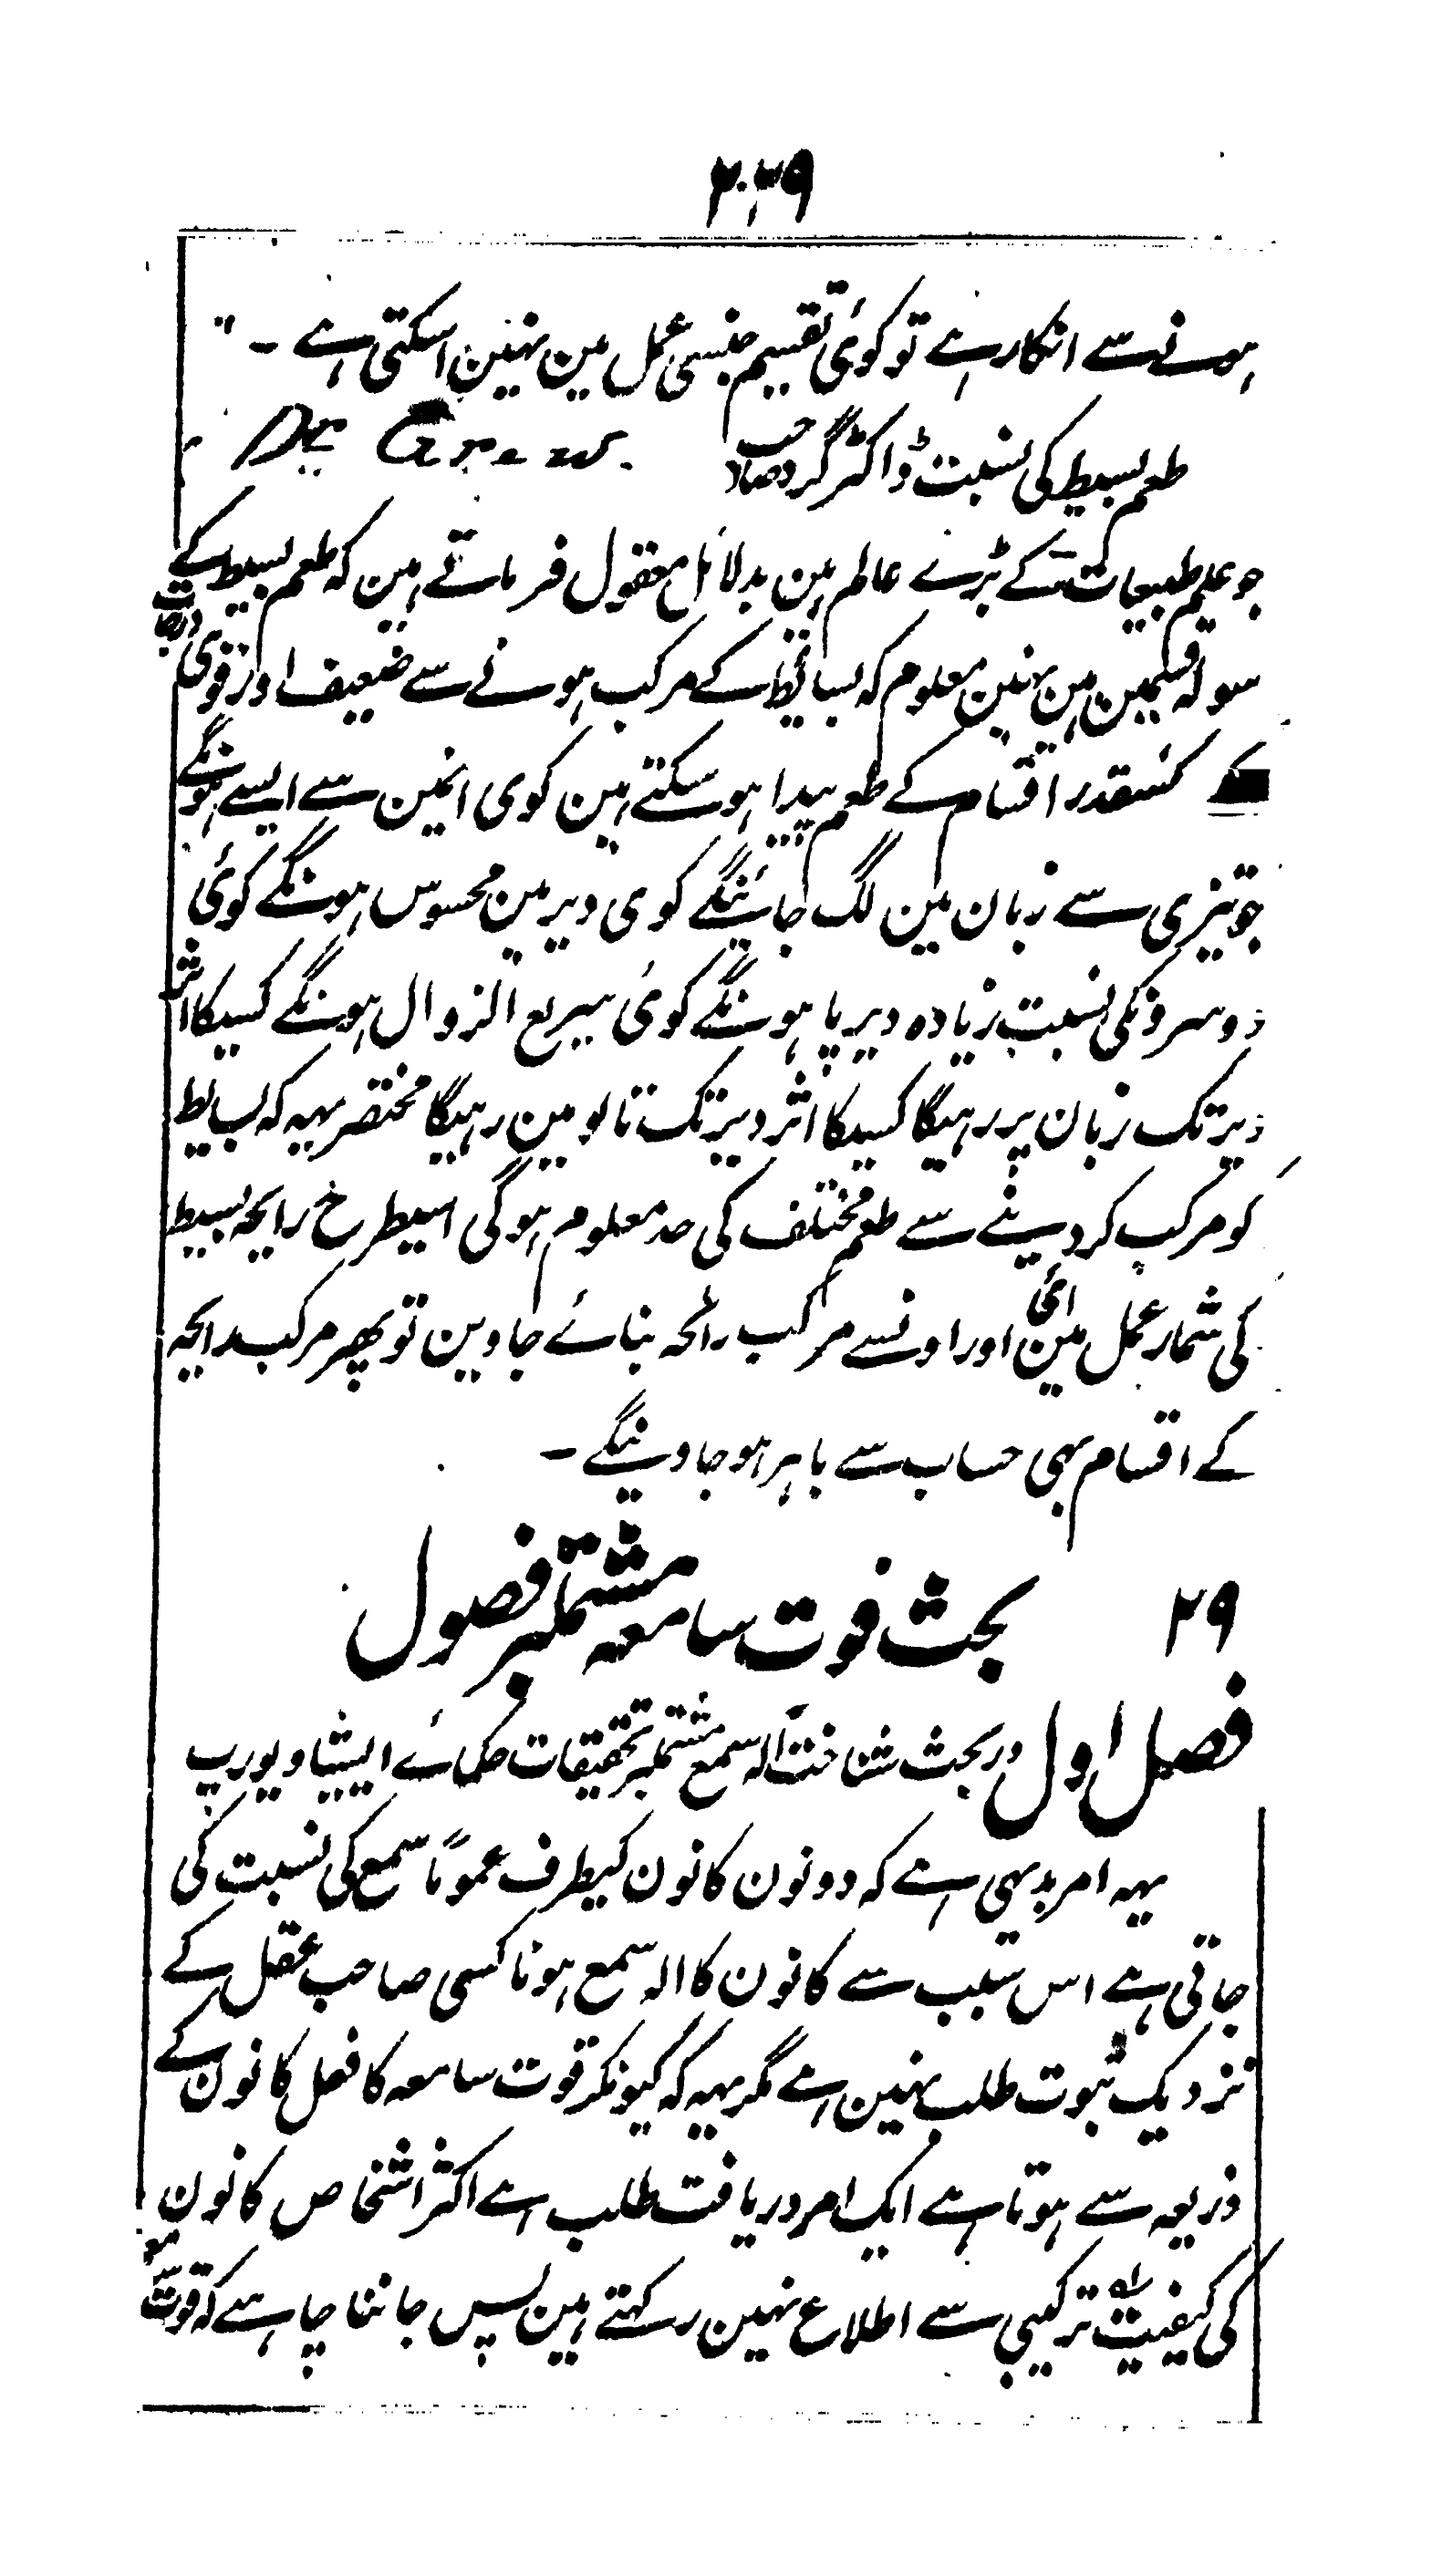 ۲۳۹
ہونے سے انکار ہے تو کوئی تقسیم جنسی عمل مین نہین اسکتی ہے ۔"
طعم بسیط کی نسبت ڈاکٹر گرو صاحب Dr. Grew.
جو علم طبیعات کے بڑے عالم ہین بدلائل معقول فرماتے ہین کہ طعم بسیط کے
سولہ قسمین ہین نہین معلوم کہ بسائط کے مرکب ہونے سے ضعیف اور قوی
کسقدر اقسام کے طعم پیدا ہو سکتے ہین کوی انمین سے ایسے ہونگے
جو تیزی سے زبان مین لگ جائینگے کوی دیر مین محسوس ہونگے کوئی
دوسرونکی نسبت زیادہ دیر پا ہونگے کوئی سریع الزوال ہونگے کسیکا اثر
دیر تک زبان پر رہیگا کسیکا اثر دیر تک تالو مین رہیگا مختصر یہہ کہ بسایط
کو مرکب کر دینے سے طعم مختلف کی حد معلوم ہوگی اسیطرح رایحہ بسیط
کی شمار عمل مین ائی اور اونسے مرکب رائحہ بنائے جاوین تو پھر مرکب رایحہ
کے اقسام بہی حساب سے باہر ہو جاوینگے ۔
۲۹ بحث قوت سامعہ مشتملبر فصول
فصل اول در بحث شناخت آلہ سمع مشتملبر تحقیقات حکمائے ایشیا و یورپ
یہہ امر بدیہی ہے کہ دونون کانون کیطرف عموماً سمع کی نسبت کی
جاتی ہے اس سبب سے کانون کا الہ سمع ہونا کسی صاحب عقل کے
نزدیک ثبوت طلب نہین ہے مگر یہہ کہ کیونکر قوت سامعہ کا فعل کانون کے
ذریعہ سے ہوتا ہے ایک امر دریافت طلب ہے اکثر اشخاص کانون
کی کیفیت ترکیبی سے اطلاع نہین رکہتے ہین پس جاننا چاہئے کہ قوت